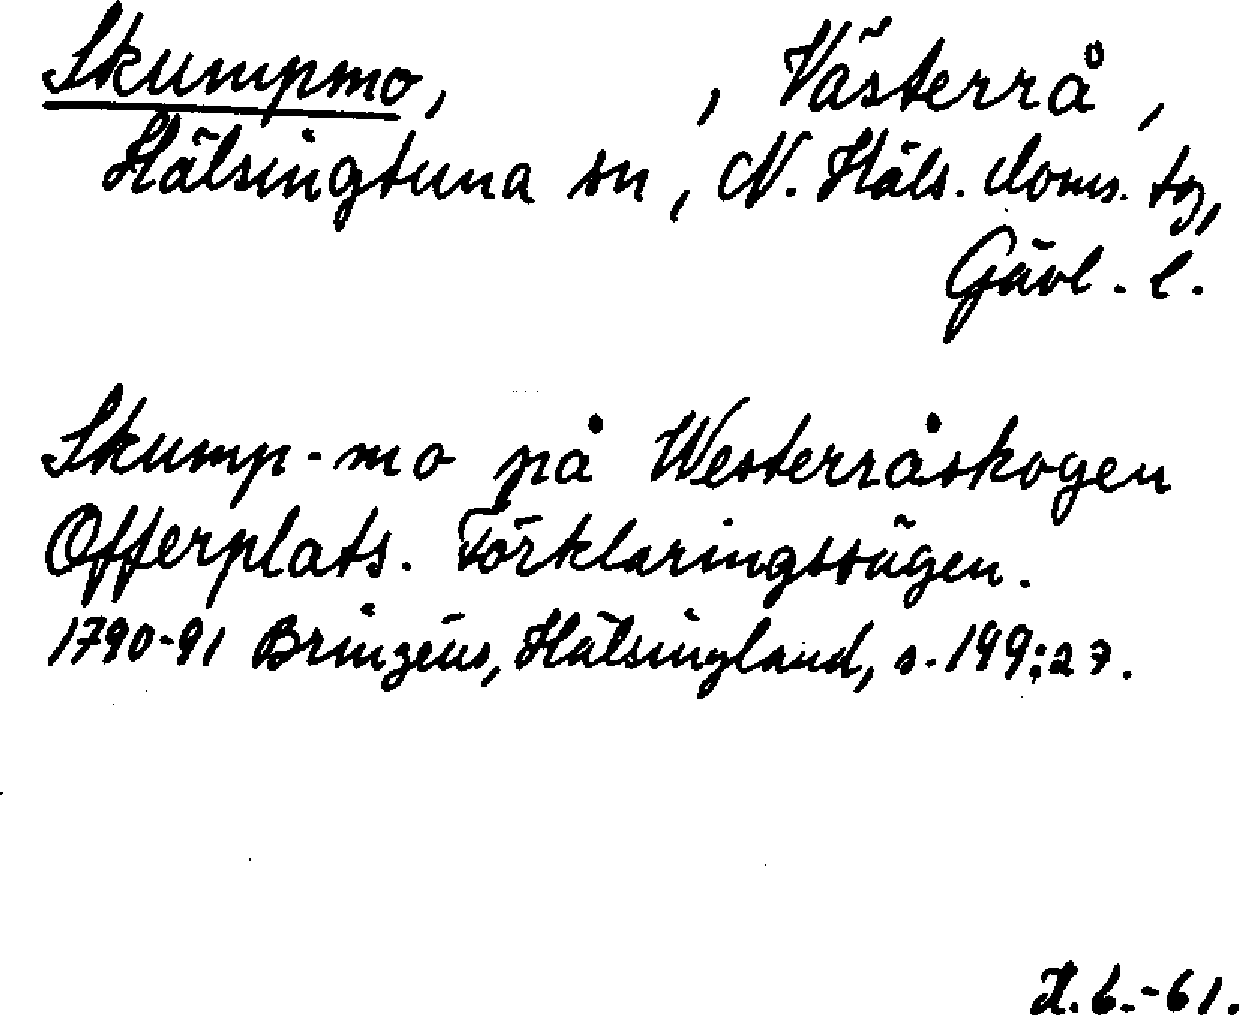 Skumpmo, , Västerrå,
Hälsingtuna sn, N. Häls. doms. tg,
Gävl. l.
Skump-mo på Westerråskogen
Offerplats. Förklaringssägen.
1790-91 Brinzéus, Hälsingland, s. 199:27.
H. b.-61.